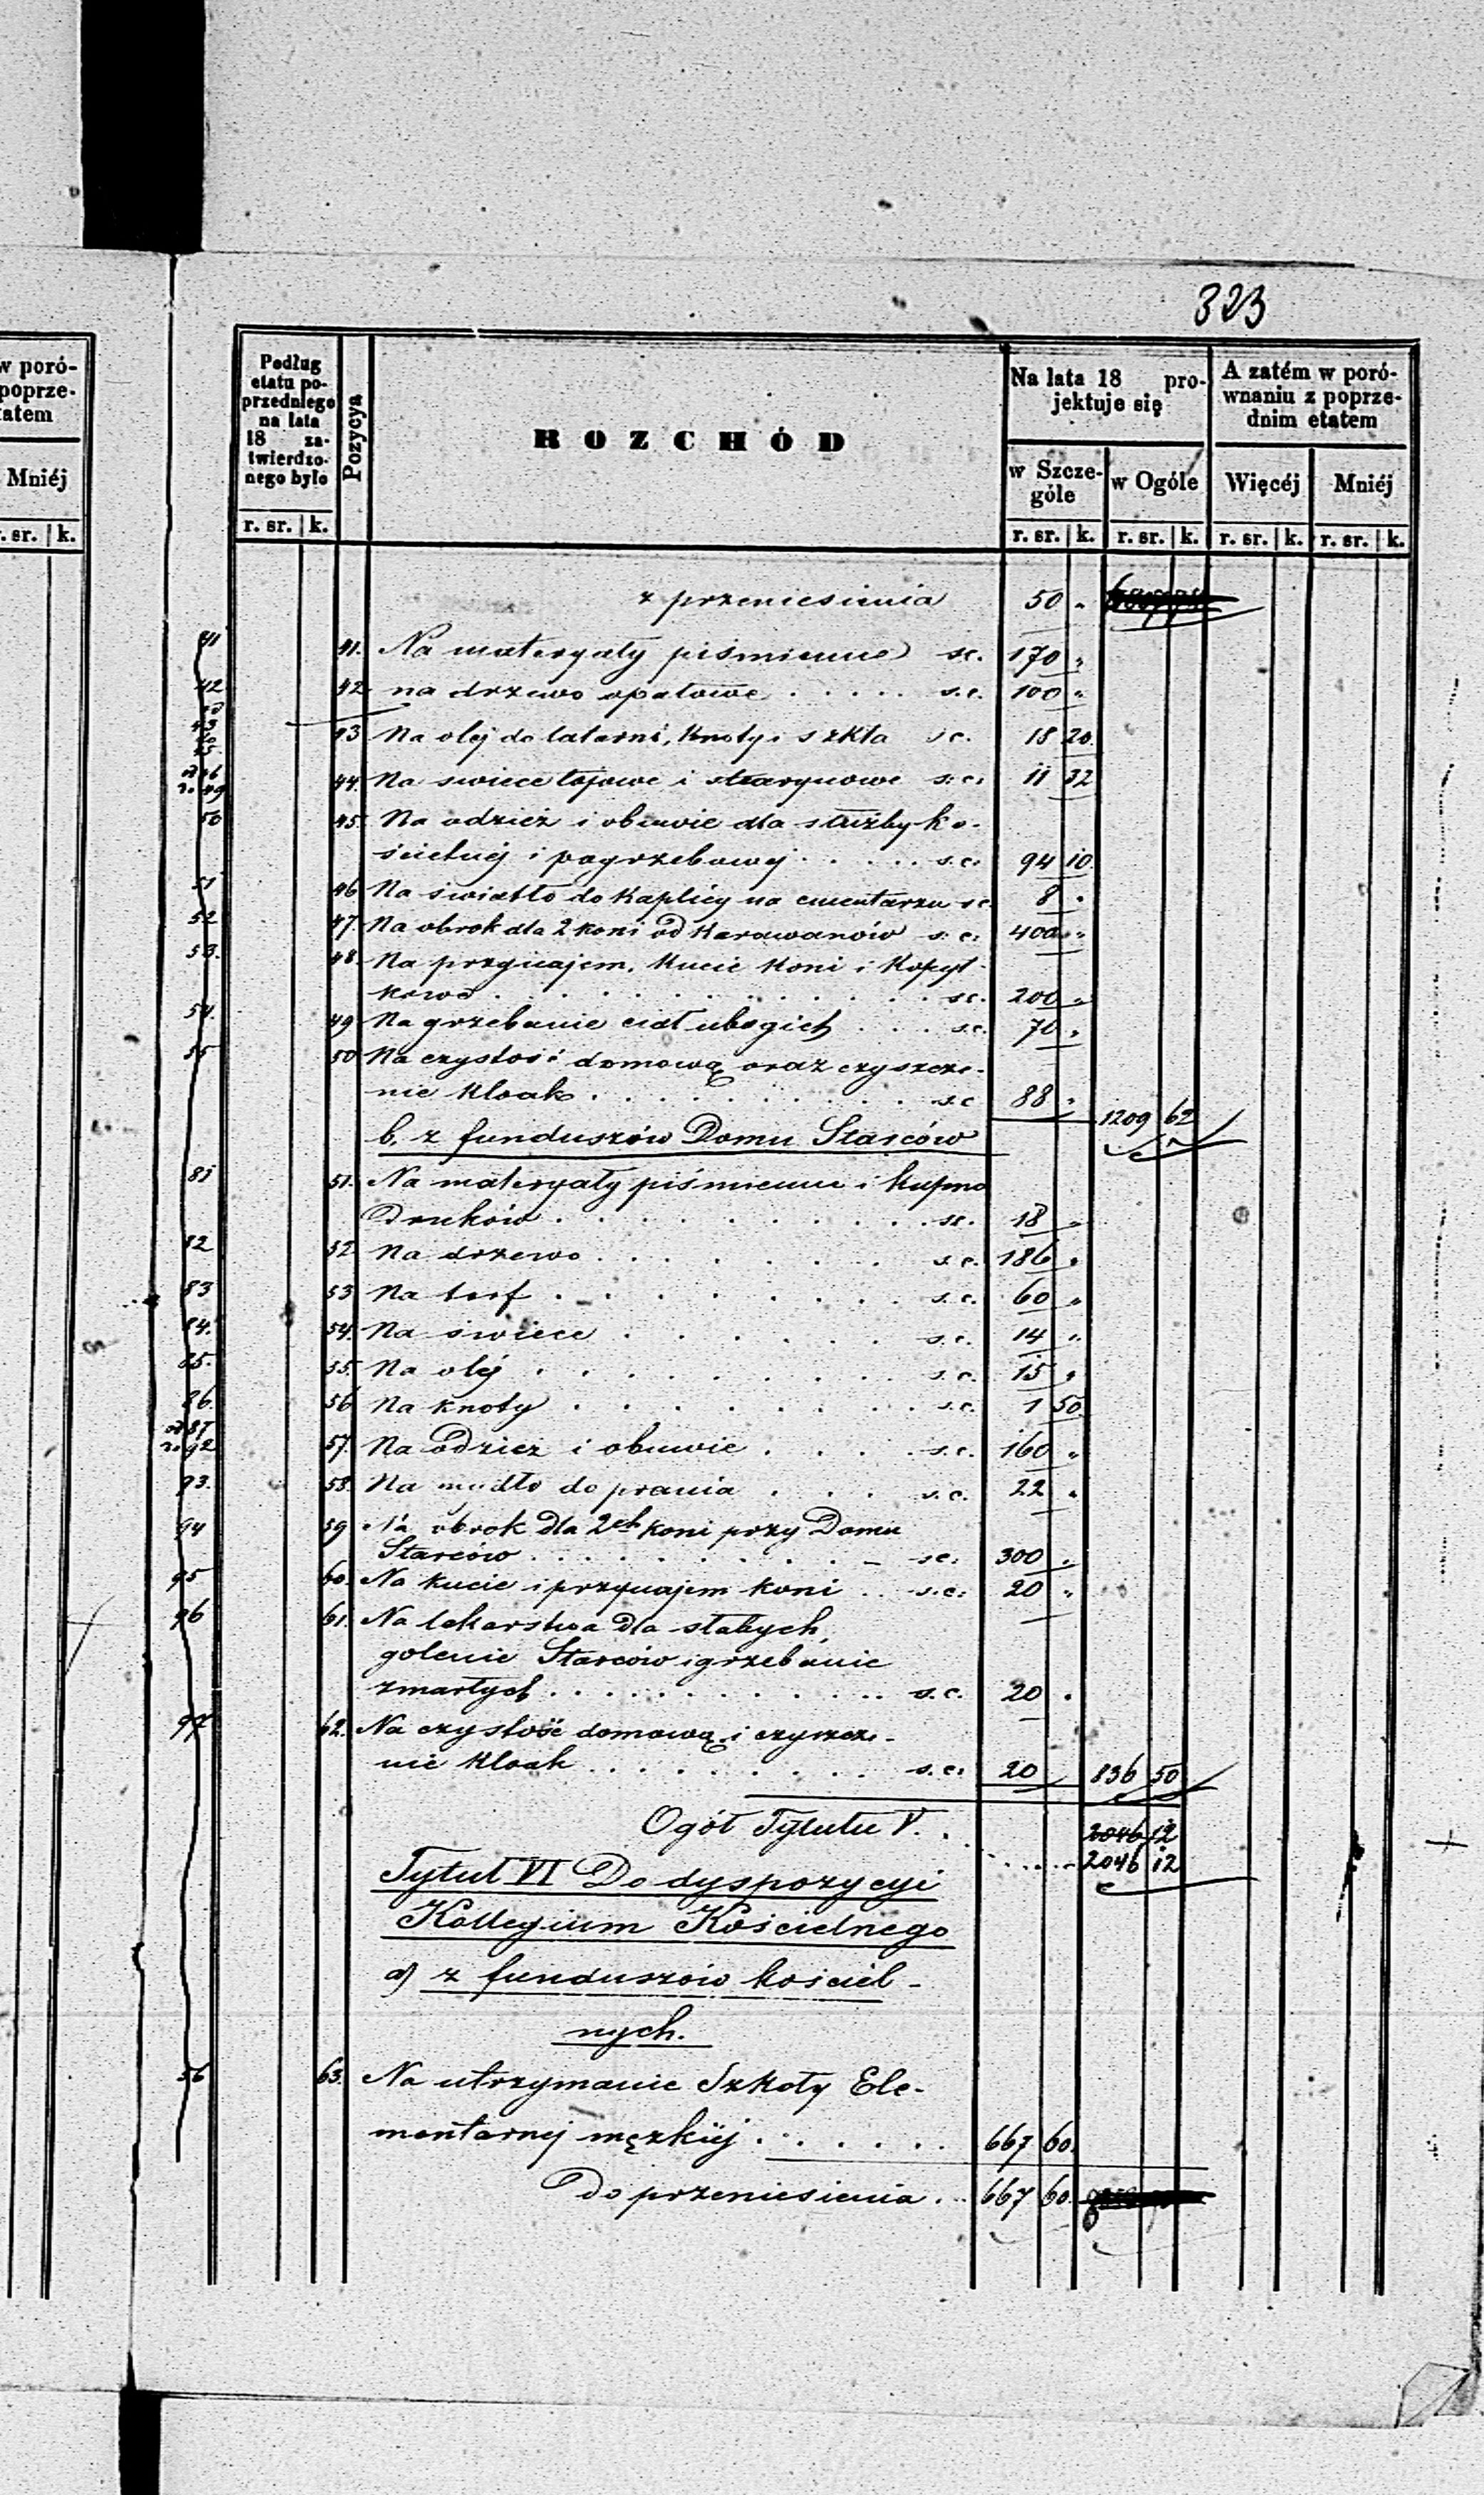 323
w poró-
poprze-
tatem
Mniéj
r. sr. k.
Podług etatu po-przedniego na lata 18 za-twierdzo-nego było
r. sr. k.
Pozycya
ROZCHÓD
Na lata 18 pro-
jektuje się
w Szcze-
góle
w Ogóle
r. sr. k. r. sr. k.
A zatém w poró-
wnaniu z poprze-
dnim etatem
Więcéj Mniéj
r. sr. k. r. sr. k.
z przeniesienia 50 "
41 41. Na materyały piśmienne sc. 170 "
42 42 na drzewo opałowe . . . . . s.c. 100 "
43 Na olej do latarni, knoty i szkła sc. 18 20.
44. Na swiece łojowe i stearynowe s.c. 11 32
50 45. Na odzież i obuwie dla służby ko-
ścielnej i pogrzebowej . . . . . s.c. 94 10.
51 46 Na światło do Kaplicy na cmentarzu sc. 8 "
52 47. Na obrok dla 2 koni od Karawanów s.c. 400 "
53. 48. Na przynajem, kucie koni i kopyt-
kowe . . . . . sc. 200 "
54. 49 Na grzebanie ciał ubogich . . . s.c. 70 "
55 50 Na czystość domową oraz czyszcze-
nie kloak . . . . . s.c 88 "
1209 62
b. z funduszów Domu Starców
81 51. Na materyały piśmienne i kupno
Druków . . . . . sc. 18 "
82 52. Na drzewo . . . . . s.c. 186 "
83 53 Na torf . . . . . s.c. 60 "
84. 54. Na świece . . . . . s.c. 14 "
85. 55. Na olej . . . . . s.c. 15 "
86. 56 Na knoty . . . . . s.c. 1 50.
od 87
do 92 57. Na odzież i obuwie . . . . s.c. 160 "
93. 58. Na mydło do prania . . . s.c. 22 "
94 59 Na obrok dla 2ch koni przy Domu
Starców . . . . . sc. 300 "
95 60. Na kucie i przynajem koni . . s.c. 20 "
96 61. Na lekarstwa dla słabych,
golenie Starców i grzebanie
zmarłych . . . . . s.c. 20 "
97 62. Na czystość domową i czyszcze-
nie kloak . . . . . s.c. 20 836 50
Ogół Tytułu V. . 2046 12
2046 12
Tytuł VI Do dyspozycyi
Kollegium Kościelnego
a) z funduszów kościel-
nych.
56 63. Na utrzymanie Szkoły Ele-
mentarnej męzkiej . . . . . . 667 60.
Do przeniesienia . . 667 60.